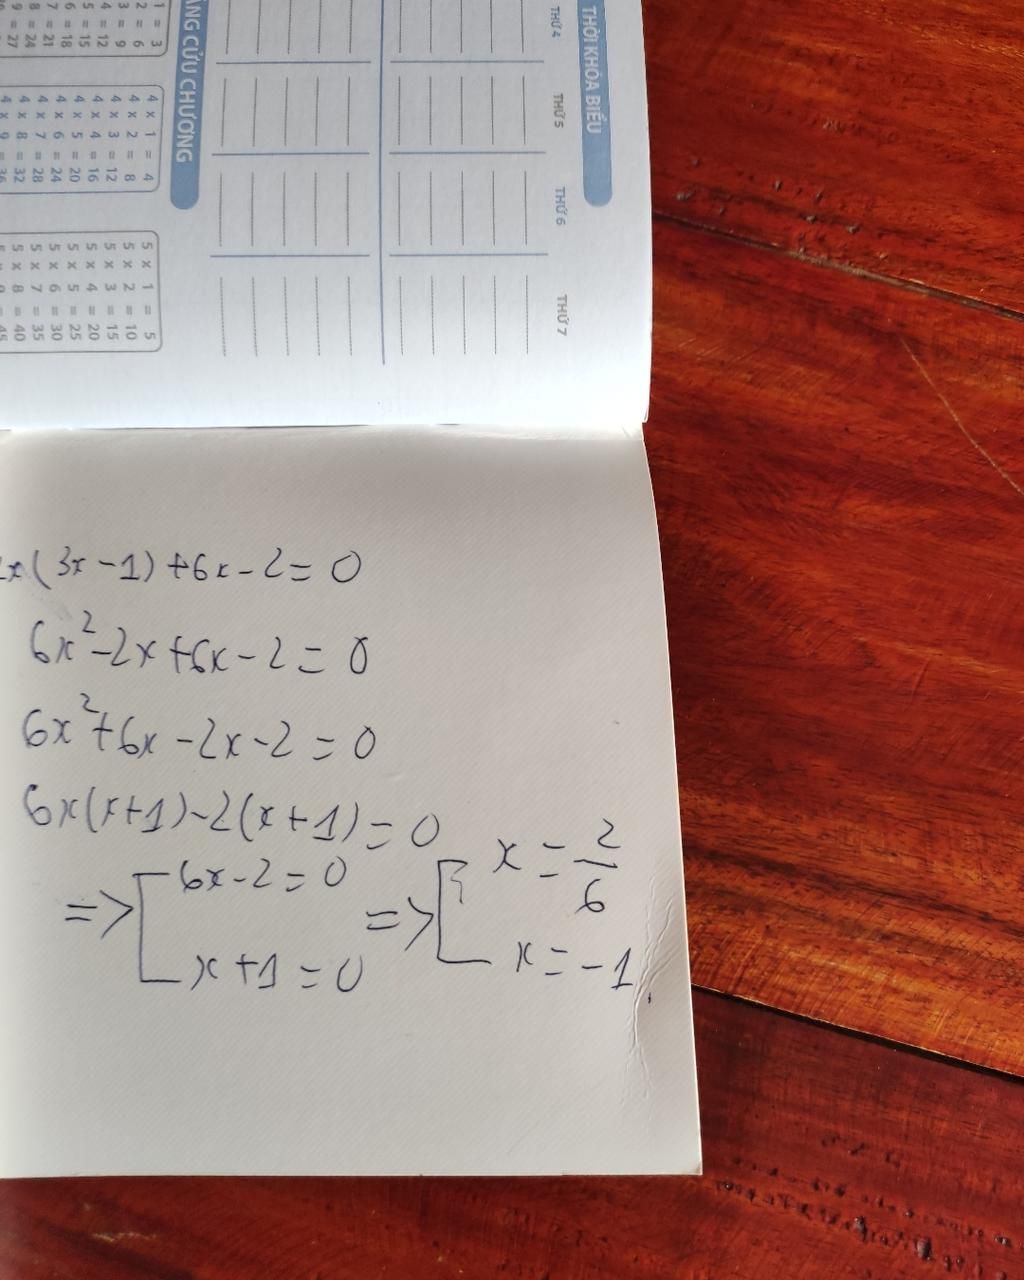 THỜI KHÓA BIỂU
THỨ 4
THỨ 5
THỨ 6
THỨ 7
CỬU CHƯƠNG
1 = 3
2 = 6
3 = 9
4 = 12
5 = 15
6 = 18
7 = 21
8 = 24
9 = 27
4 x 1 = 4
4 x 2 = 8
4 x 3 = 12
4 x 4 = 16
4 x 5 = 20
4 x 6 = 24
4 x 7 = 28
4 x 8 = 32
4 x 9 = 36
5 x 1 = 5
5 x 2 = 10
5 x 3 = 15
5 x 4 = 20
5 x 5 = 25
5 x 6 = 30
5 x 7 = 35
5 x 8 = 40
5 x 9 = 45
2x(3x-1)+6x-2=0
6x²-2x+6x-2=0
6x²+6x-2x-2=0
6x(x+1)-2(x+1)=0
=> [ 6x-2=0 => [ x=2/6
x+1=0 x=-1